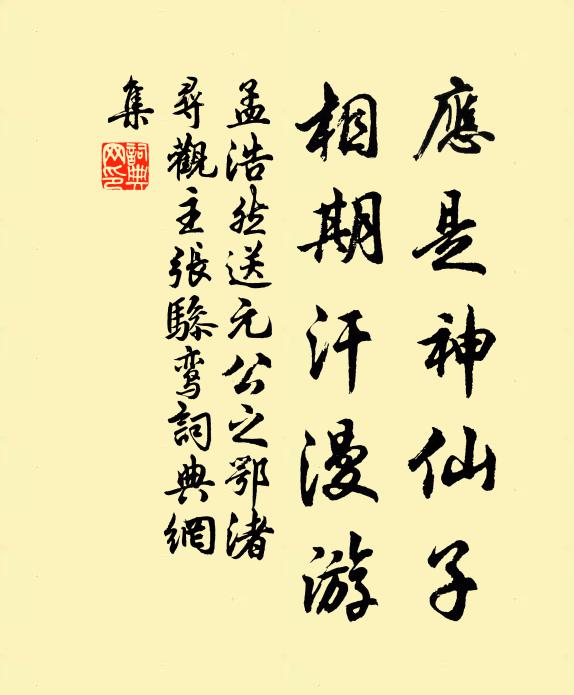 應是神仙子
相期汗漫游
孟浩然送元公之鄂渚
尋觀主張驂鸾詞典網
集
詞典網印